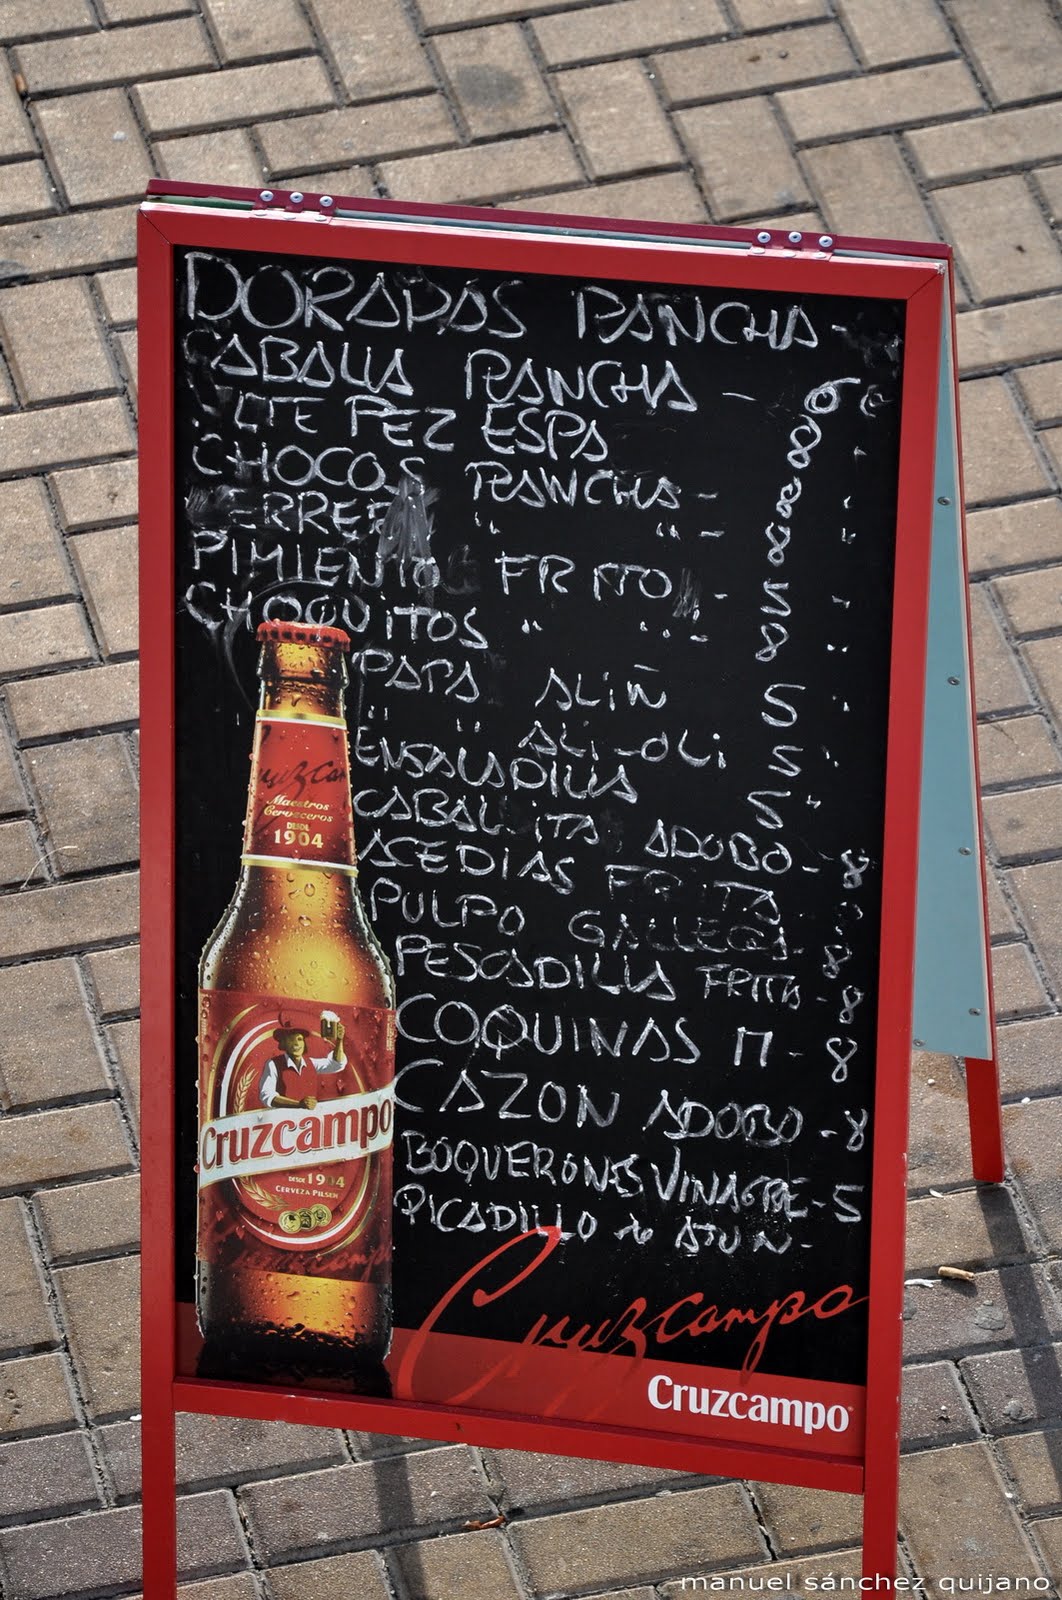 DORADAS PLANCHA -
CABALLA PLANCHA - 6 €
FLTE PEZ ESPA 8
CHOCOS PLANCHA - 8
" " - 8
PIMIENTO FRITO - 5
CHOQUITOS " " 8
PAPA ALIÑ 5
" " ALI-OLI 5
ENSALADILLA 5 "
CABALLITA ADOBO - 8
ACEDIAS FRITA
PULPO GALLEGA - 8
PESCADILLA FRITA - 8
COQUINAS M - 8
CAZON ADOBO - 8
BOQUERONES VINAGRE - 5
PICADILLO ATUN -
Cruzcampo
Maestros
Cerveceros
DESDE
1904
Cruzcampo
DESDE 1904
CERVEZA PILSEN
Cruzcampo
Cruzcampo
manuel sánchez quijano